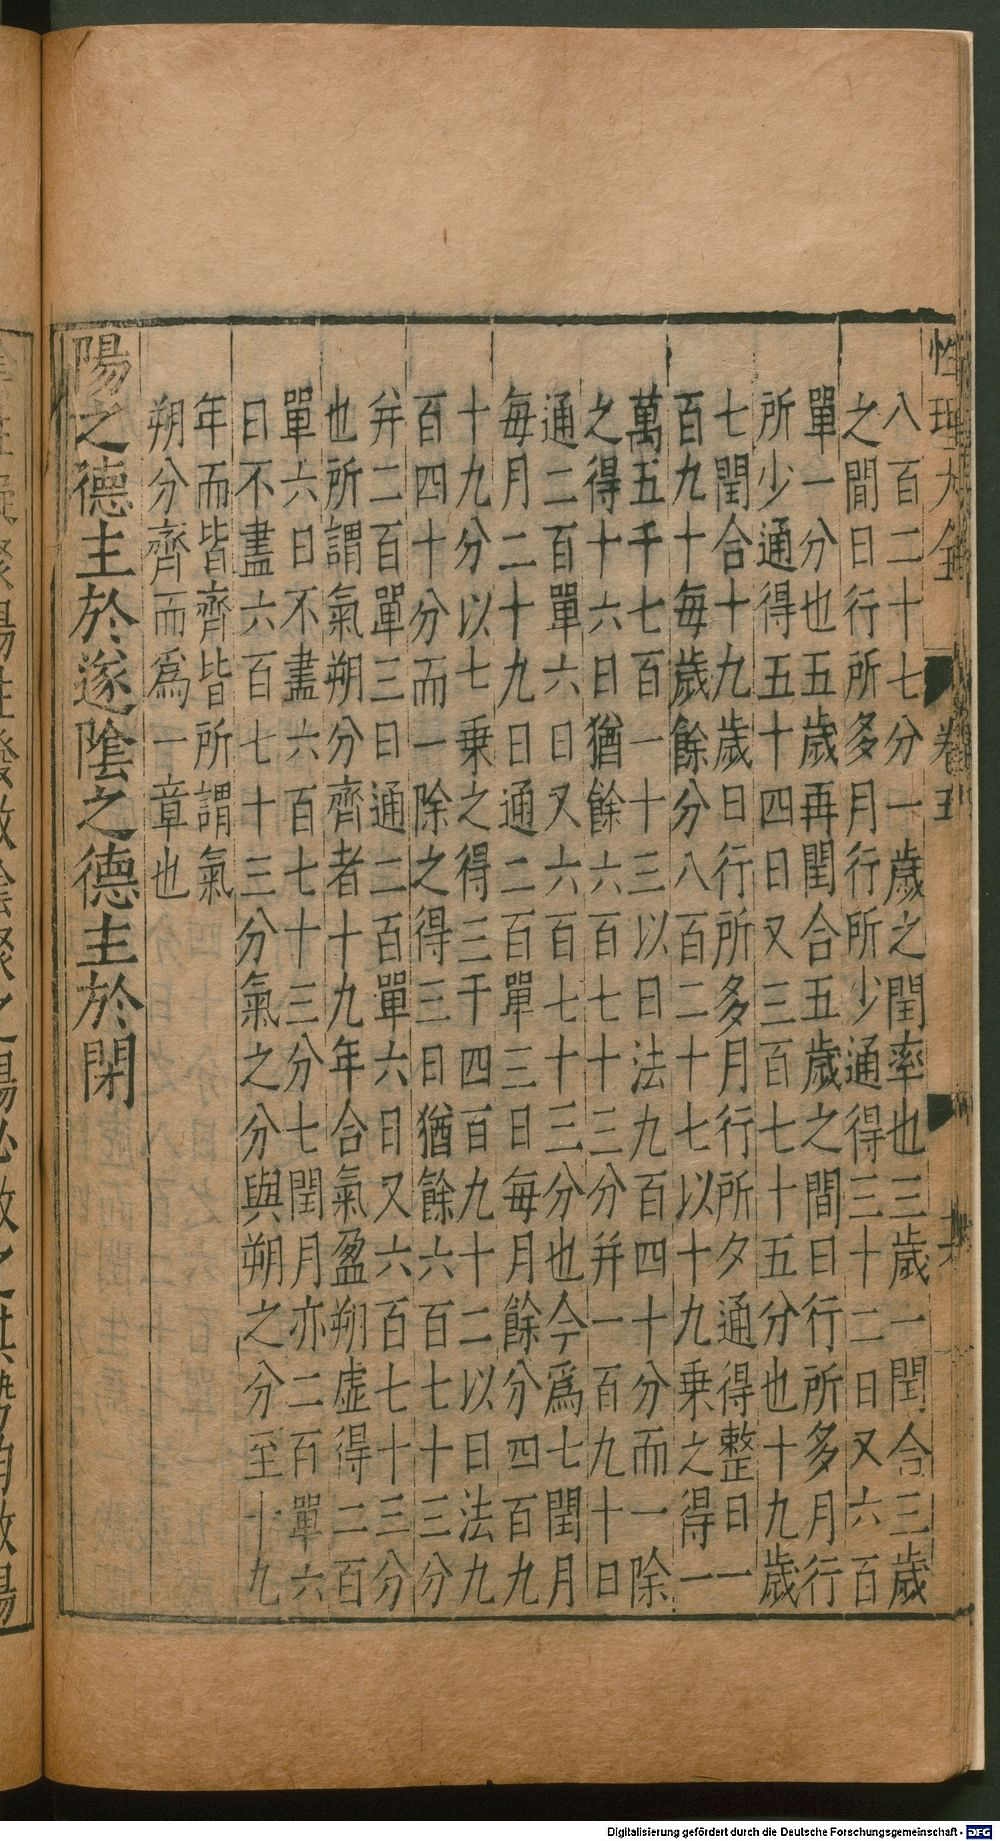 性理大全 卷五
八百二十七分一歲之閏率也三歲一閏合三歲
之間日行所多月行所少通得三十二日又六百
單一分也五歲再閏合五歲之間日行所多月行
所少通得五十四日又三百七十五分也十九歲
七閏合十九歲日行所多月行所夕通得整日一
百九十每歲餘分八百二十七以十九乘之得一
萬五千七百一十三以日法九百四十分而一除
之得十六日猶餘六百七十三分并一百九十日
通二百單六日又六百七十三分也今爲七閏月
每月二十九日通二百單三日每月餘分四百九
十九分以七乘之得三千四百九十二以日法九
百四十分而一除之得三日猶餘六百七十三分
并二百單三日通二百單六日又六百七十三分
也所謂氣朔分齊者十九年合氣盈朔虛得二百
單六日不盡六百七十三分七閏月亦二百單六
日不盡六百七十三分氣之分與朔之分至十九
年而皆齊皆所謂氣
朔分齊而爲一章也
陽之德主於遂陰之德主於閉
Digitalisierung gefördert durch die Deutsche Forschungsgemeinschaft - DFG